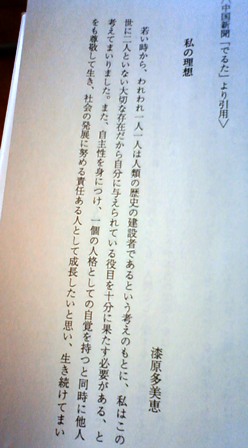 中国新聞「でるた」より引用〉
私の理想
漆原多美恵
若い時から、われわれ一人一人は人類の歴史の建設者であるという考えのもとに、私はこの
世に二人といない大切な存在だから自分に与えられている役目を十分に果たす必要がある、と
考えてまいりました。また、自主性を身につけ、一個の人格としての自覚を持つと同時に他人
をも尊敬して生き、社会の発展に努める責任ある人として成長したいと思い、生き続けてまい